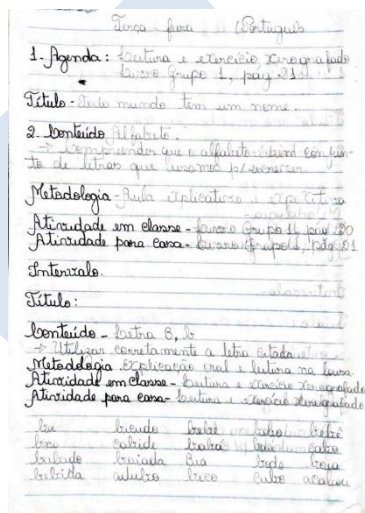 Terça - feira (Português
1. Agenda: Leitura e exercício xerografado
Livro Grupo 1, pag 21
Título - Todo mundo tem um nome.
2. Conteúdo Alfabeto.
→ Compreender que o alfabeto é um conjun-
to de letras que usamos p/ escrever
Metodologia - Aula explicativa e
Atividade em classe - Livro Grupo 1, pag 20
Atividade para casa - Livro Grupo 1, pág 21
Intervalo.
Título:
Conteúdo - Letra B, b
→ Utilizar corretamente a letra citada
Metodologia Explicação oral e leitura na lousa
Atividade em classe - Leitura e exercício xerografado
Atividade para casa - Leitura e exercício xerografado
bebê
cabide
babado Bia
bebida adubo bico cubo acabou